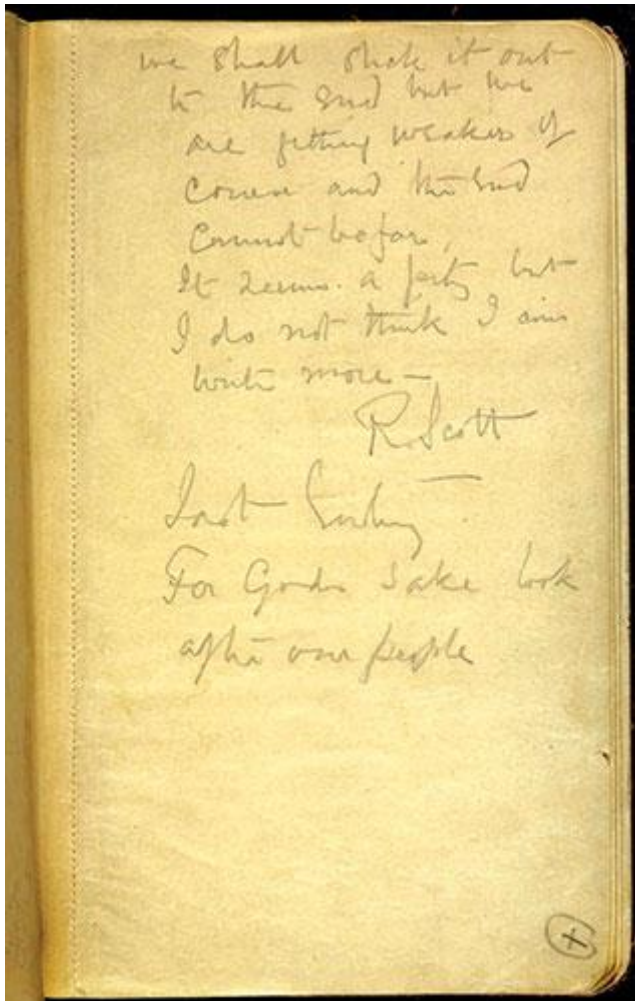 we shall stick it out
to the end but we
are getting weaker of
course and the end
cannot be far.
It seems a pity but
I do not think I can
write more—
R. Scott
Last Entry
For Gods sake look
after our people
+